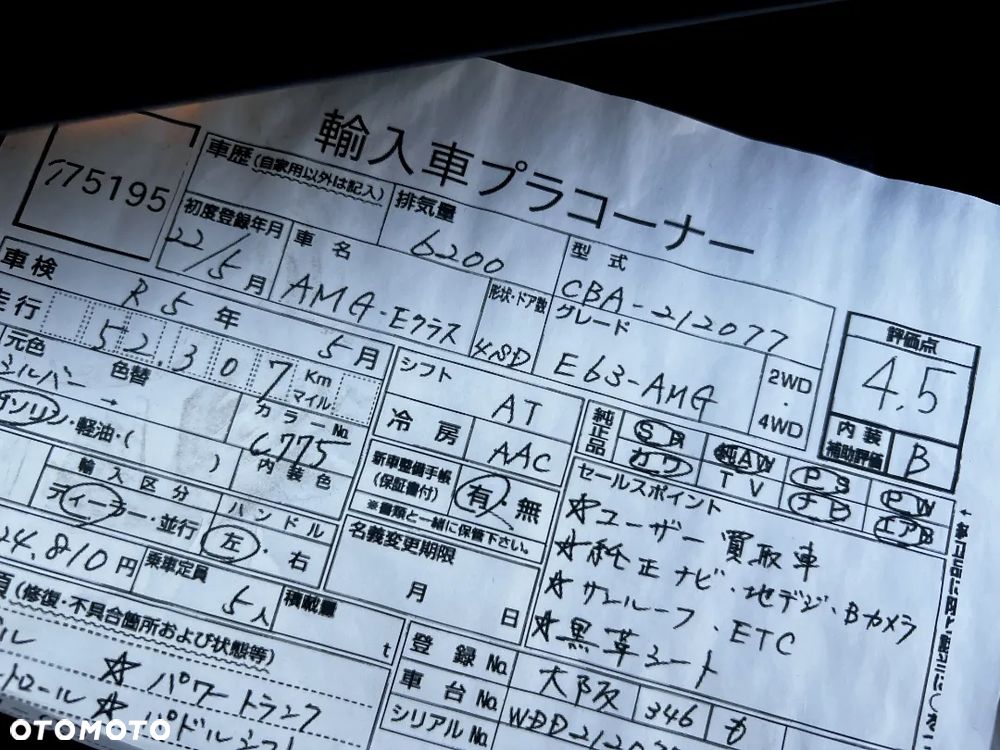 輸入車プラコーナー
75195
車歴(自家用以外は記入)
排気量
6200
型式
CBA-212077
初度登録年月
22/5月
車名
AMG-Eクラス
形状・ドア数
4SD
グレード
E63-AMG
2WD・4WD
評価点
4.5
内装補助評価
B
車検
R5年5月
走行
52,307
Km
マイル
元色
シルバー
色替
→
カラーNo.
C775
内装色
ガソリン・軽油・( )
シフト
AT
冷房
AAC
純正品
SR
純AW
PS
PW
カワ
TV
ナビ
エアB
新車整備手帳
(保証書付)
有・無
※書類と一緒に保管下さい。
セールスポイント
☆ユーザー買取車
☆純正ナビ・地デジ・Bカメラ
☆サンルーフ、ETC
☆黒革シート
輸入区分
ディーラー・並行
ハンドル
左・右
名義変更期限
月
日
24,810円
乗車定員
5人
積載量
t
(修復・不具合箇所および状態等)
☆パワートランク
トロール☆パドルシフト
登録No.
大阪
346
も
車台No.
シリアルNo.
WDD21207
OTOMOTO